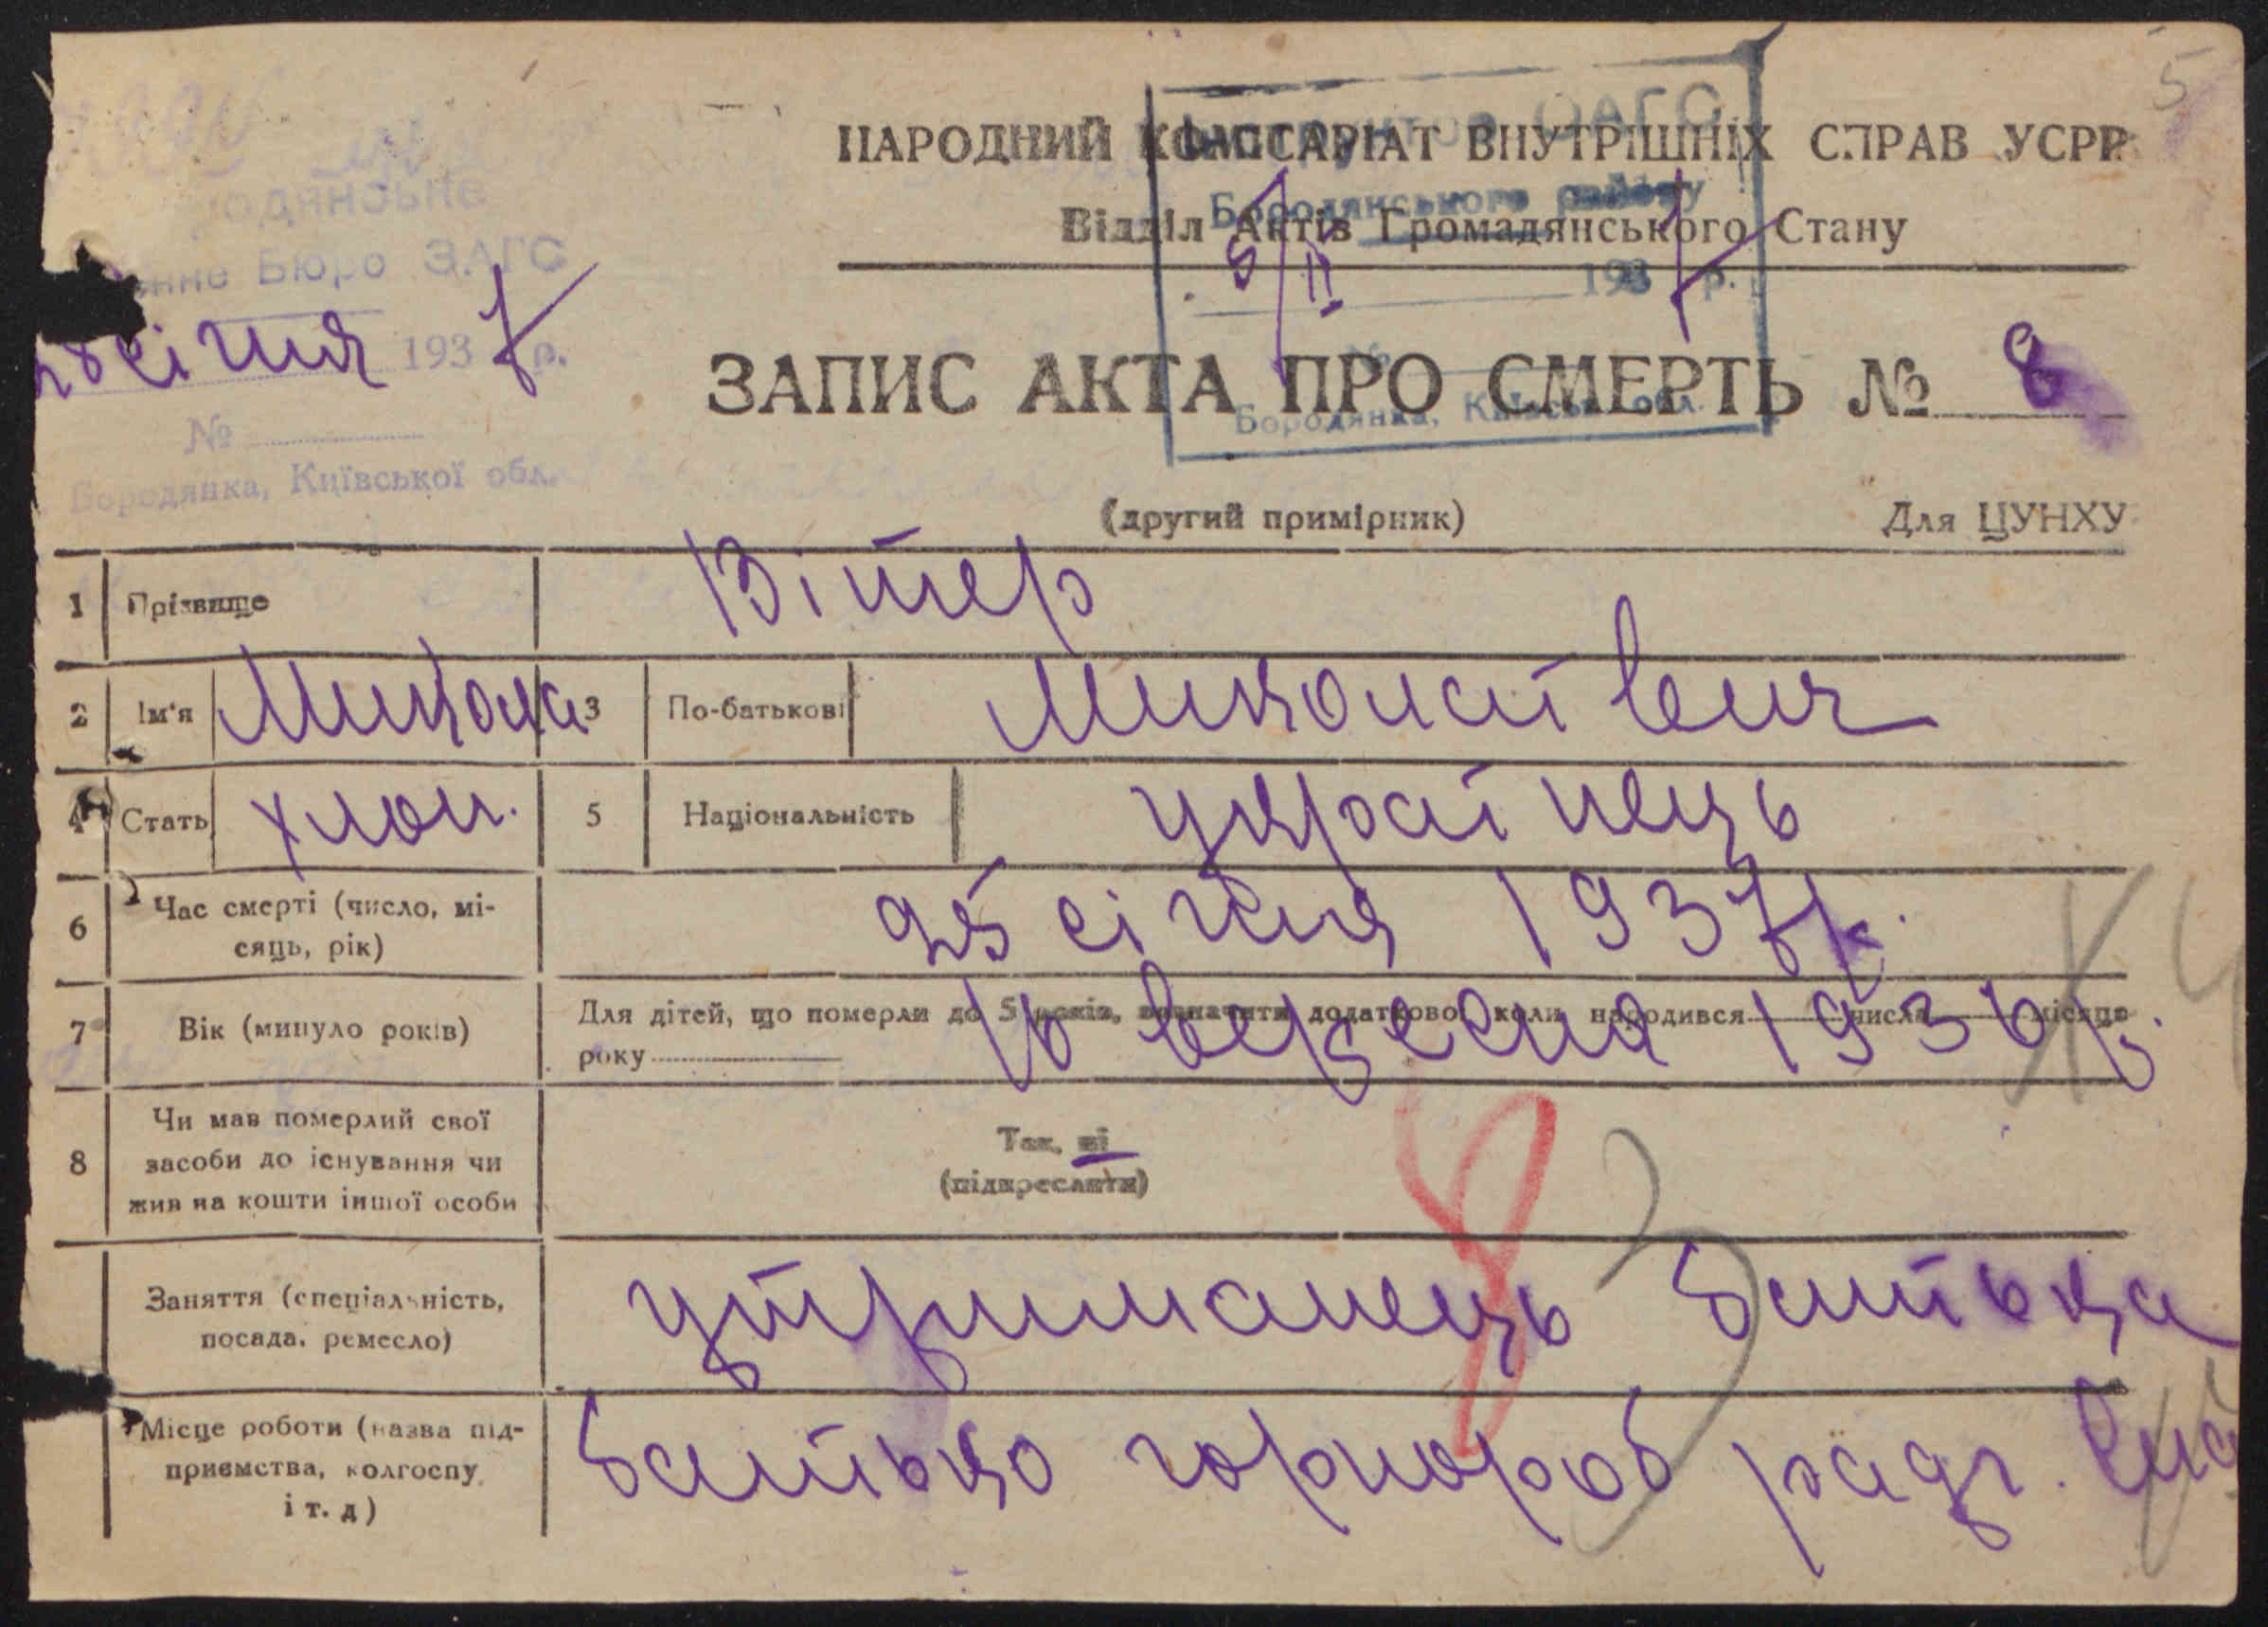 5
НАРОДНИЙ КОМІСАРІАТ ВНУТРІШНІХ СПРАВ УСРР
Відділ Актів Громадянського Стану
ЗАГС
Бородянського району
5/II 1937 р.
№
Бородянка, Київськ. обл.
Бюро ЗАГС
січня 1937 р.
№
Бородянка, Київської обл.
ЗАПИС АКТА ПРО СМЕРТЬ № 8
(другий примірник) Для ЦУНХУ
1 Прізвище Вітер
2 Ім'я Микола 3 По-батькові Миколаївич
4 Стать хлоп. 5 Національність українець
6 Час смерті (число, мі-
сяць, рік) 25 січня 1937 р.
7 Вік (минуло років) Для дітей, що померли до 5 років, визначити додатково, коли народився числа місяця
року 16 вересня 1936 р.
8 Чи мав померлий свої
засоби до існування чи
жив на кошти іншої особи
Так, ні
(підкреслити)
Заняття (спеціальність,
посада, ремесло) утриманець батька
Місце роботи (назва під-
приємства, колгоспу
і т. д) батько чорнороб радг.